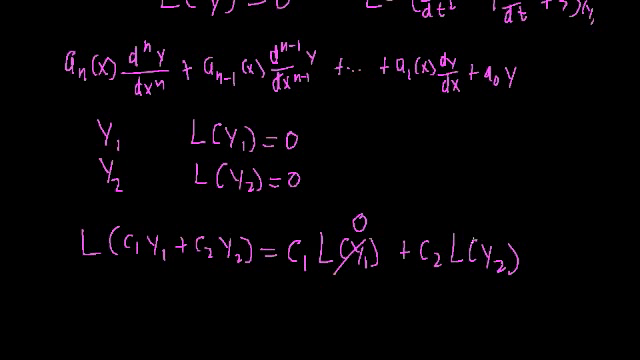 L(Y)=0
a_n(x) d^n y/dx^n + a_{n-1}(x) d^{n-1} y/dx^{n-1} + ... + a_1(x) dy/dx + a_0 y
Y_1 L(Y_1)=0
Y_2 L(Y_2)=0
0
L(C_1 Y_1 + C_2 Y_2) = C_1 L(Y_1) + C_2 L(Y_2)